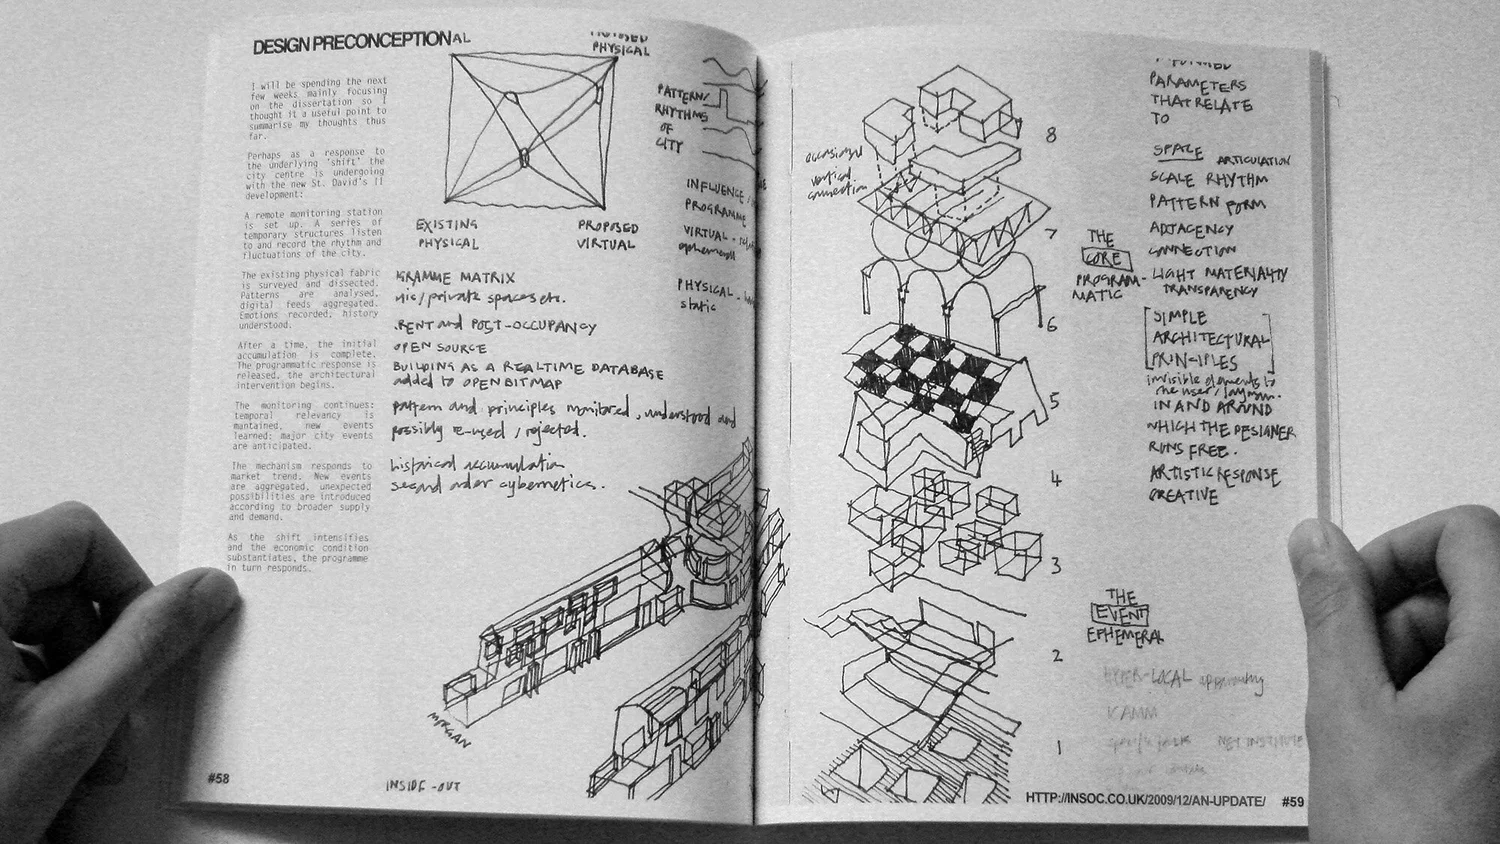 DESIGN PRECONCEPTIONAL
I will be spending the next
few weeks mainly focusing
on the dissertation so I
thought it a useful point to
summarise my thoughts thus
far.
Perhaps as a response to
the underlying 'shift' the
city centre is undergoing
with the new St. David's II
development:
A remote monitoring station
is set up. A series of
temporary structures listen
to and record the rhythm and
fluctuations of the city.
The existing physical fabric
is surveyed and dissected.
Patterns are analysed,
digital feeds aggregated.
Emotions recorded, history
understood.
After a time, the initial
accumulation is complete.
The programmatic response is
released, the architectural
intervention begins.
The monitoring continues:
temporal relevancy is
mantained, new events
learned: major city events
are anticipated.
The mechanism responds to
market trend. New events
are aggregated, unexpected
possibilities are introduced
according to broader supply
and demand.
As the shift intensifies
and the economic condition
substantiates, the programme
in turn responds.
PHYSICAL
EXISTING
PHYSICAL
PROPOSED
VIRTUAL
PATTERN/
RHYTHMS
OF
CITY
INFLUENCE
PROGRAMME
VIRTUAL -
ephemeral
PHYSICAL -
static
GRAMME MATRIX
/private spaces etc.
RENT and POST-OCCUPANCY
OPEN SOURCE
BUILDING AS A REALTIME DATABASE
added to OPENBITMAP
pattern and principles monitored, understood and
possibly re-used / rejected.
historical accumulation
second order cybernetics.
MORGAN
INSIDE-OUT
#58
occasional
vertical
connection
8
7
6
5
4
3
2
1
THE
CORE
PROGRAM-
MATIC
THE
EVENT
EPHEMERAL
HYPER-LOCAL
PARAMETERS
THAT RELATE
TO
SPACE ARTICULATION
SCALE RHYTHM
PATTERN FORM
ADJACENCY
CONNECTION
LIGHT MATERIALITY
TRANSPARENCY
SIMPLE
ARCHITECTURAL
PRINCIPLES
invisible elements to
the user / layman.
IN AND AROUND
WHICH THE DESIGNER
RUNS FREE.
ARTISTIC RESPONSE
CREATIVE
NET INSTITUTE
HTTP://INSOC.CO.UK/2009/12/AN-UPDATE/ #59